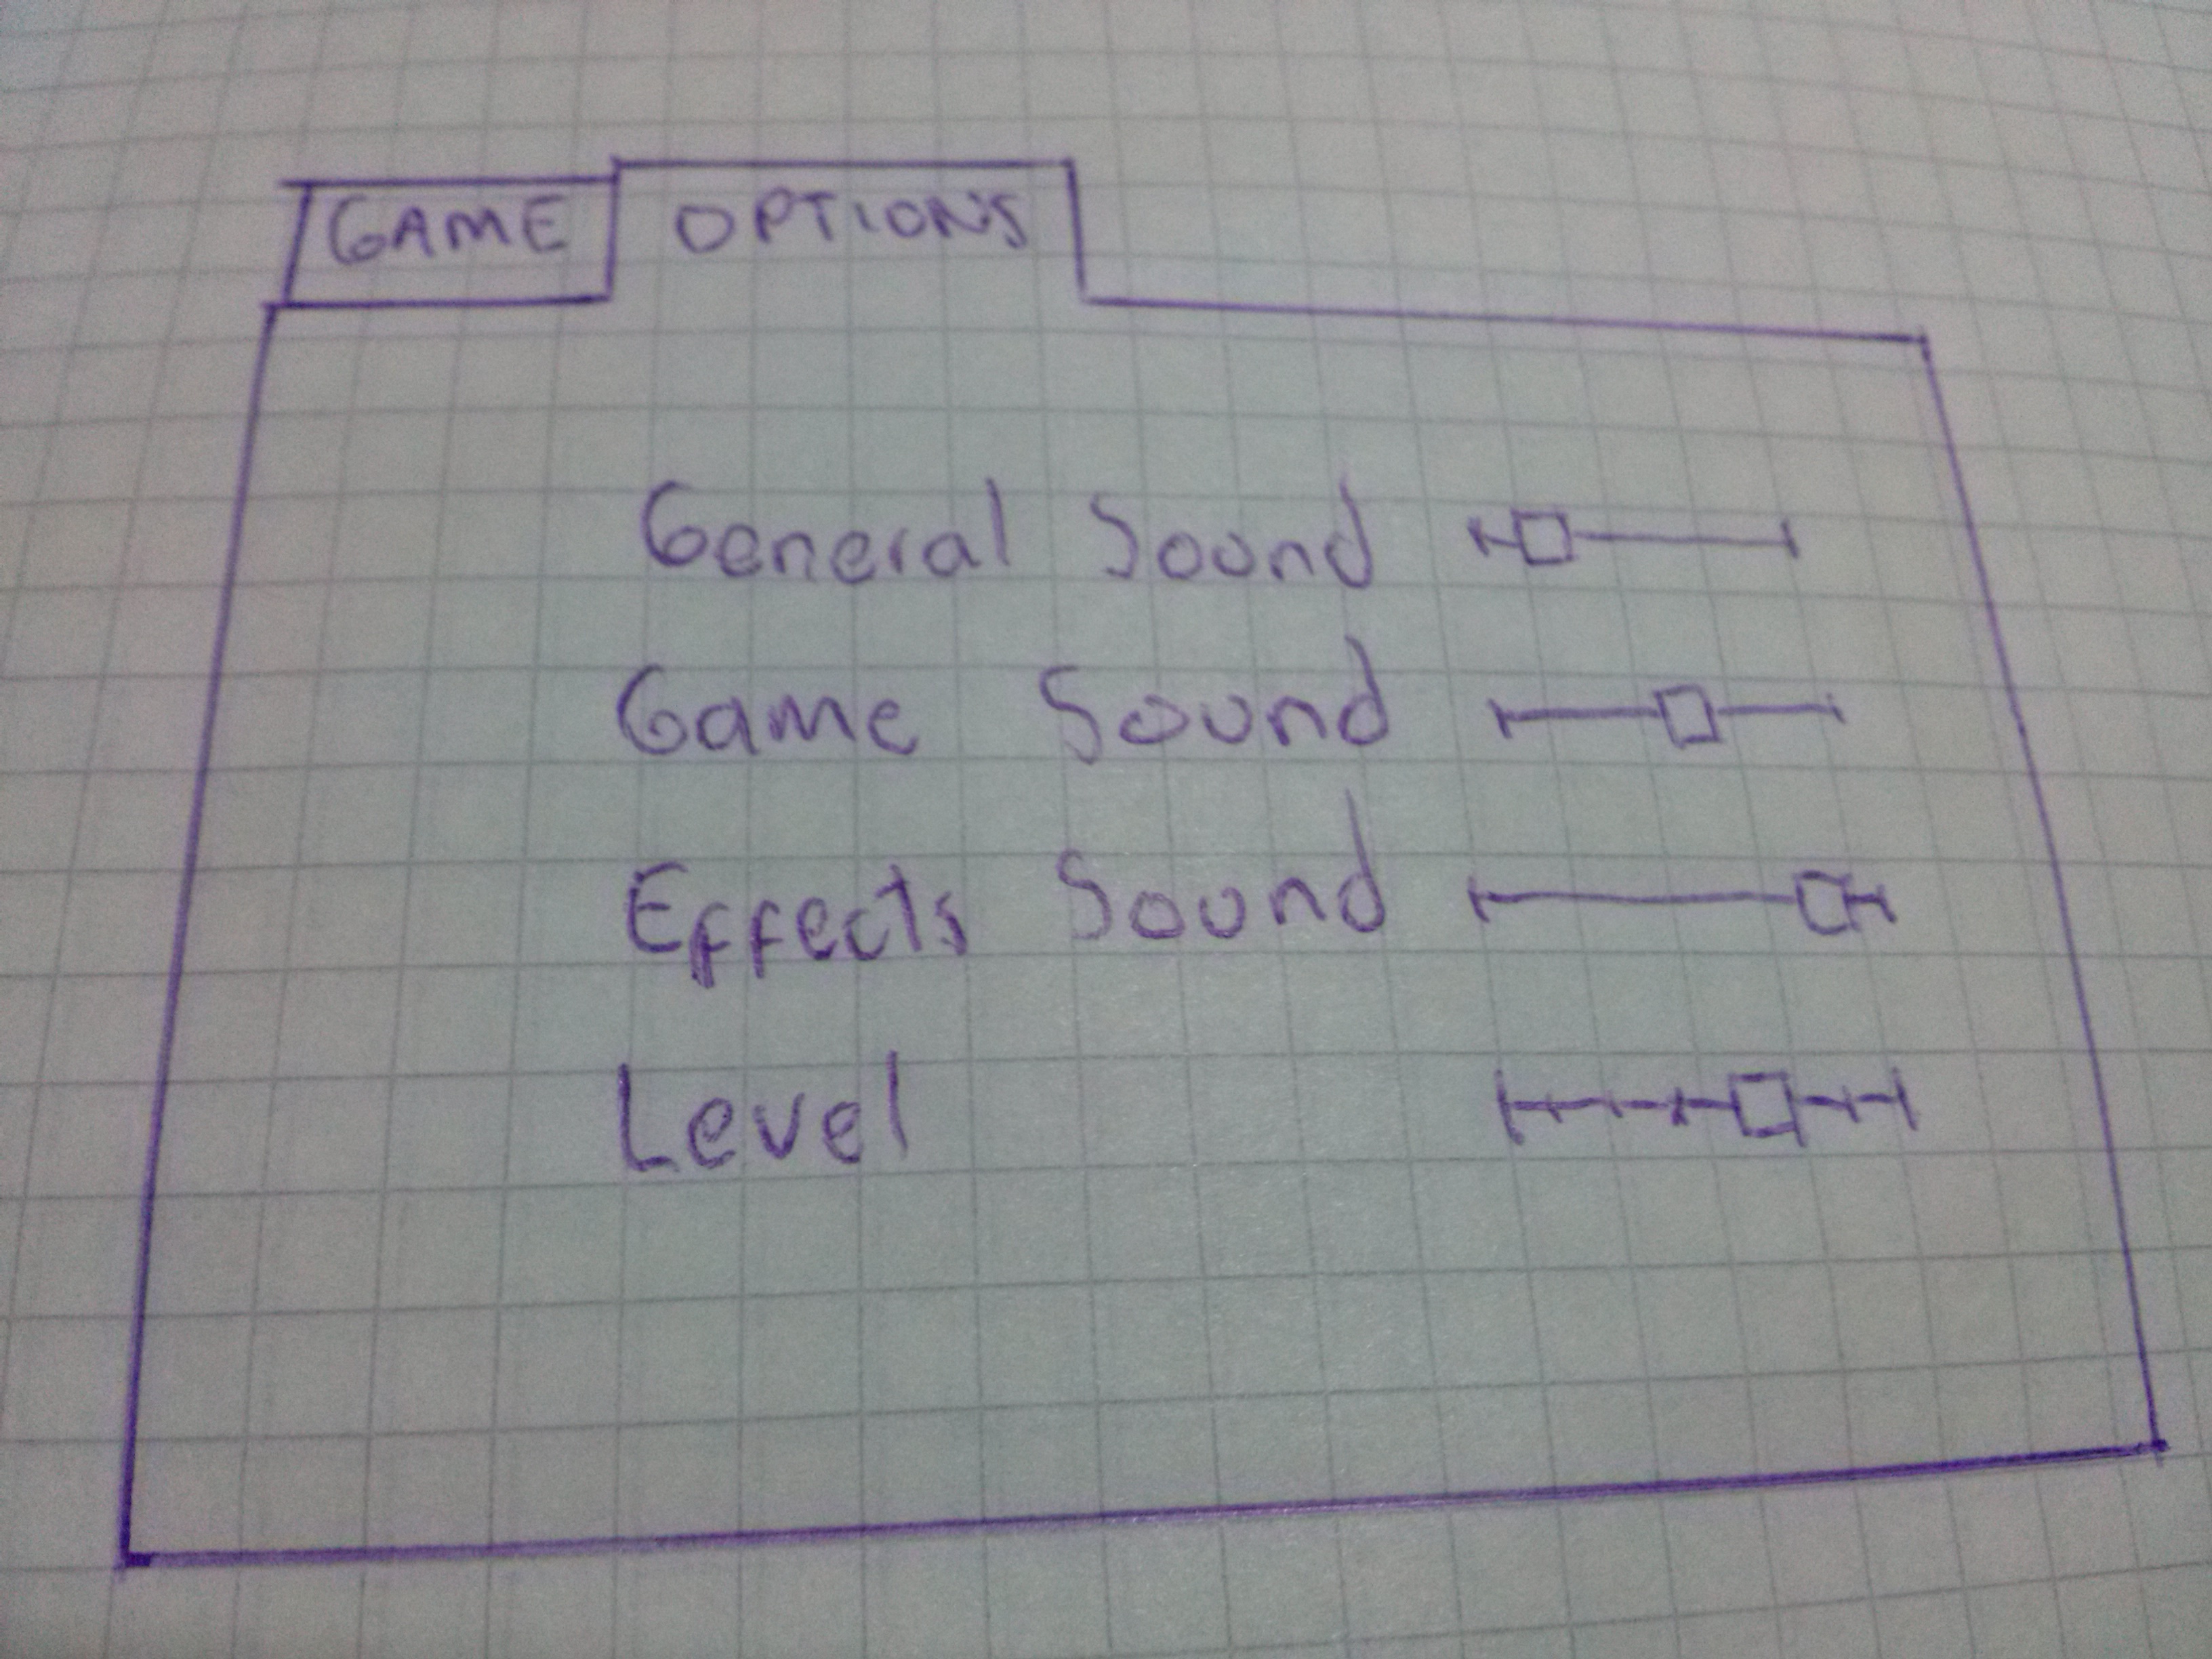 GAME OPTIONS
General Sound
Game Sound
Effects Sound
Level